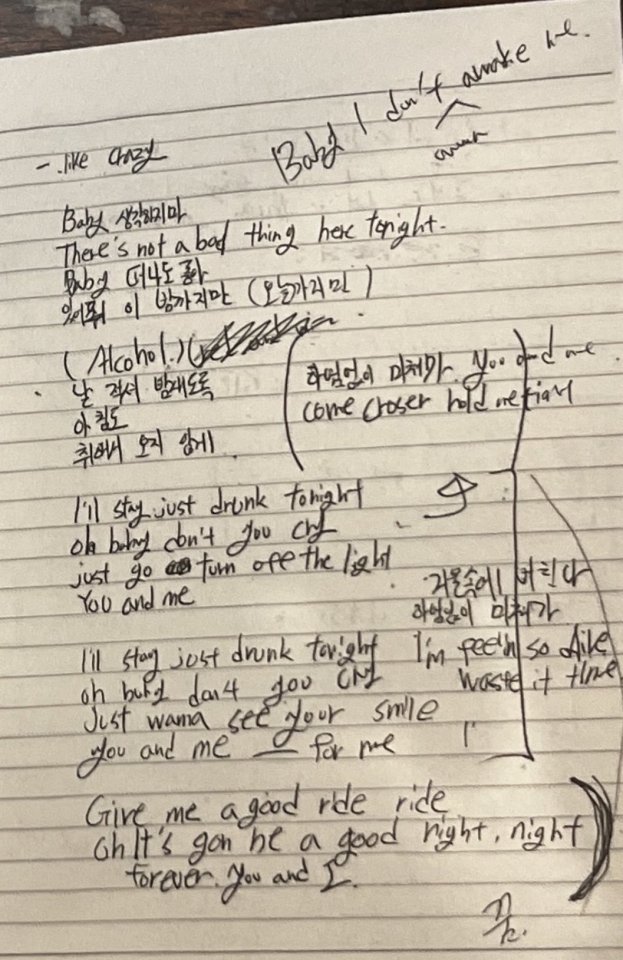 Baby I don't awake me.
- like crazy
Baby 생각하지마
There's not a bad thing here tonight.
Baby 떠나도 좋아
있어줘 이 밤까지만 (오늘까지만)
(Alcohol.)
날 적셔 밤새도록
아침도
취해서 오지 않게
하염없이 미쳐가 you and me
come croser hold me
I'll stay just drunk tonight
oh baby don't you cry
just go turn off the light
You and me
거울속에 비친 나
하염없이 미쳐가
I'm feel'n so alive
waste it time
I'll stay just drunk tonight
oh baby don4 you cry
Just wanna see your smile
you and me — for me
Give me a good ride ride
oh It's gon be a good night, night
forever. you and I.